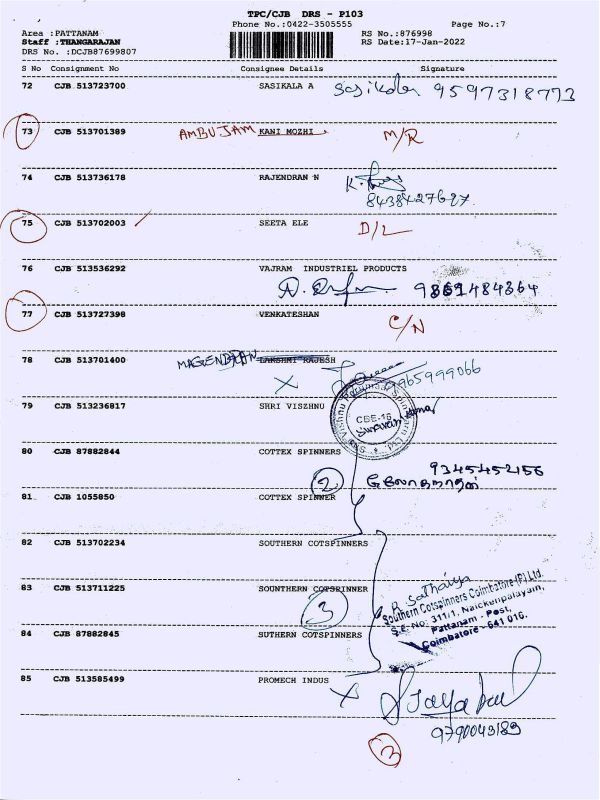 TPC/CJB DRS - P103
Phone No.:0422-3505555
Page No.:7
Area :PATTANAM
RS No.:876998
Staff :THANGARAJAN
RS Date:17-Jan-2022
DRS No. :DCJB87699807
S No Consignment No Consignee Details Signature
72 CJB 513723700 SASIKALA A Sasikala 9597318773
73 CJB 513701389 AMBUJAM KANI MOZHI M/R
74 CJB 513736178 RAJENDRAN N
8438427627
75 CJB 513702003 SEETA ELE D/L
76 CJB 513536292 VAJRAM INDUSTRIEL PRODUCTS
9361484364
77 CJB 513727398 VENKATESHAN C/N
78 CJB 513701400 LAKSHMI RAJESH
9965999066
79 CJB 513236817 SHRI VISZHNU
CBE-16
80 CJB 87882844 COTTEX SPINNERS
9345452156
2
81 CJB 1055850 COTTEX SPINNER
82 CJB 513702234 SOUTHERN COTSPINNERS
83 CJB 513711225 SOUNTHERN COTSPINNER
3
R. Sathaiya
Southern Cotspinners Coimbatore (P) Ltd.
S.F. No: 311/1, Naickenpalayam,
Pattanam - Post,
Coimbatore - 641 016.
84 CJB 87882845 SUTHERN COTSPINNERS
85 CJB 513585499 PROMECH INDUS
9790043189
3